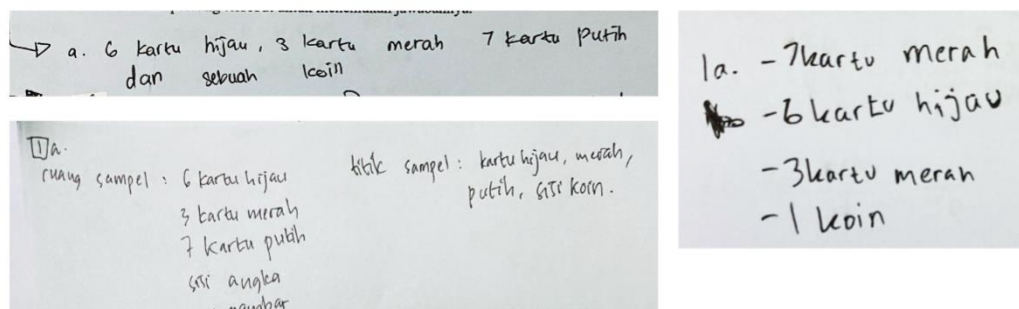 a. 6 kartu hijau, 3 kartu merah 7 kartu putih
dan sebuah koin
1a.
ruang sampel : 6 kartu hijau
3 kartu merah
7 kartu putih
sisi angka
gambar
titik sampel : kartu hijau, merah,
putih, sisi koin.
1a. - 7kartu merah
- 6 kartu hijau
- 3kartu merah
- 1 koin